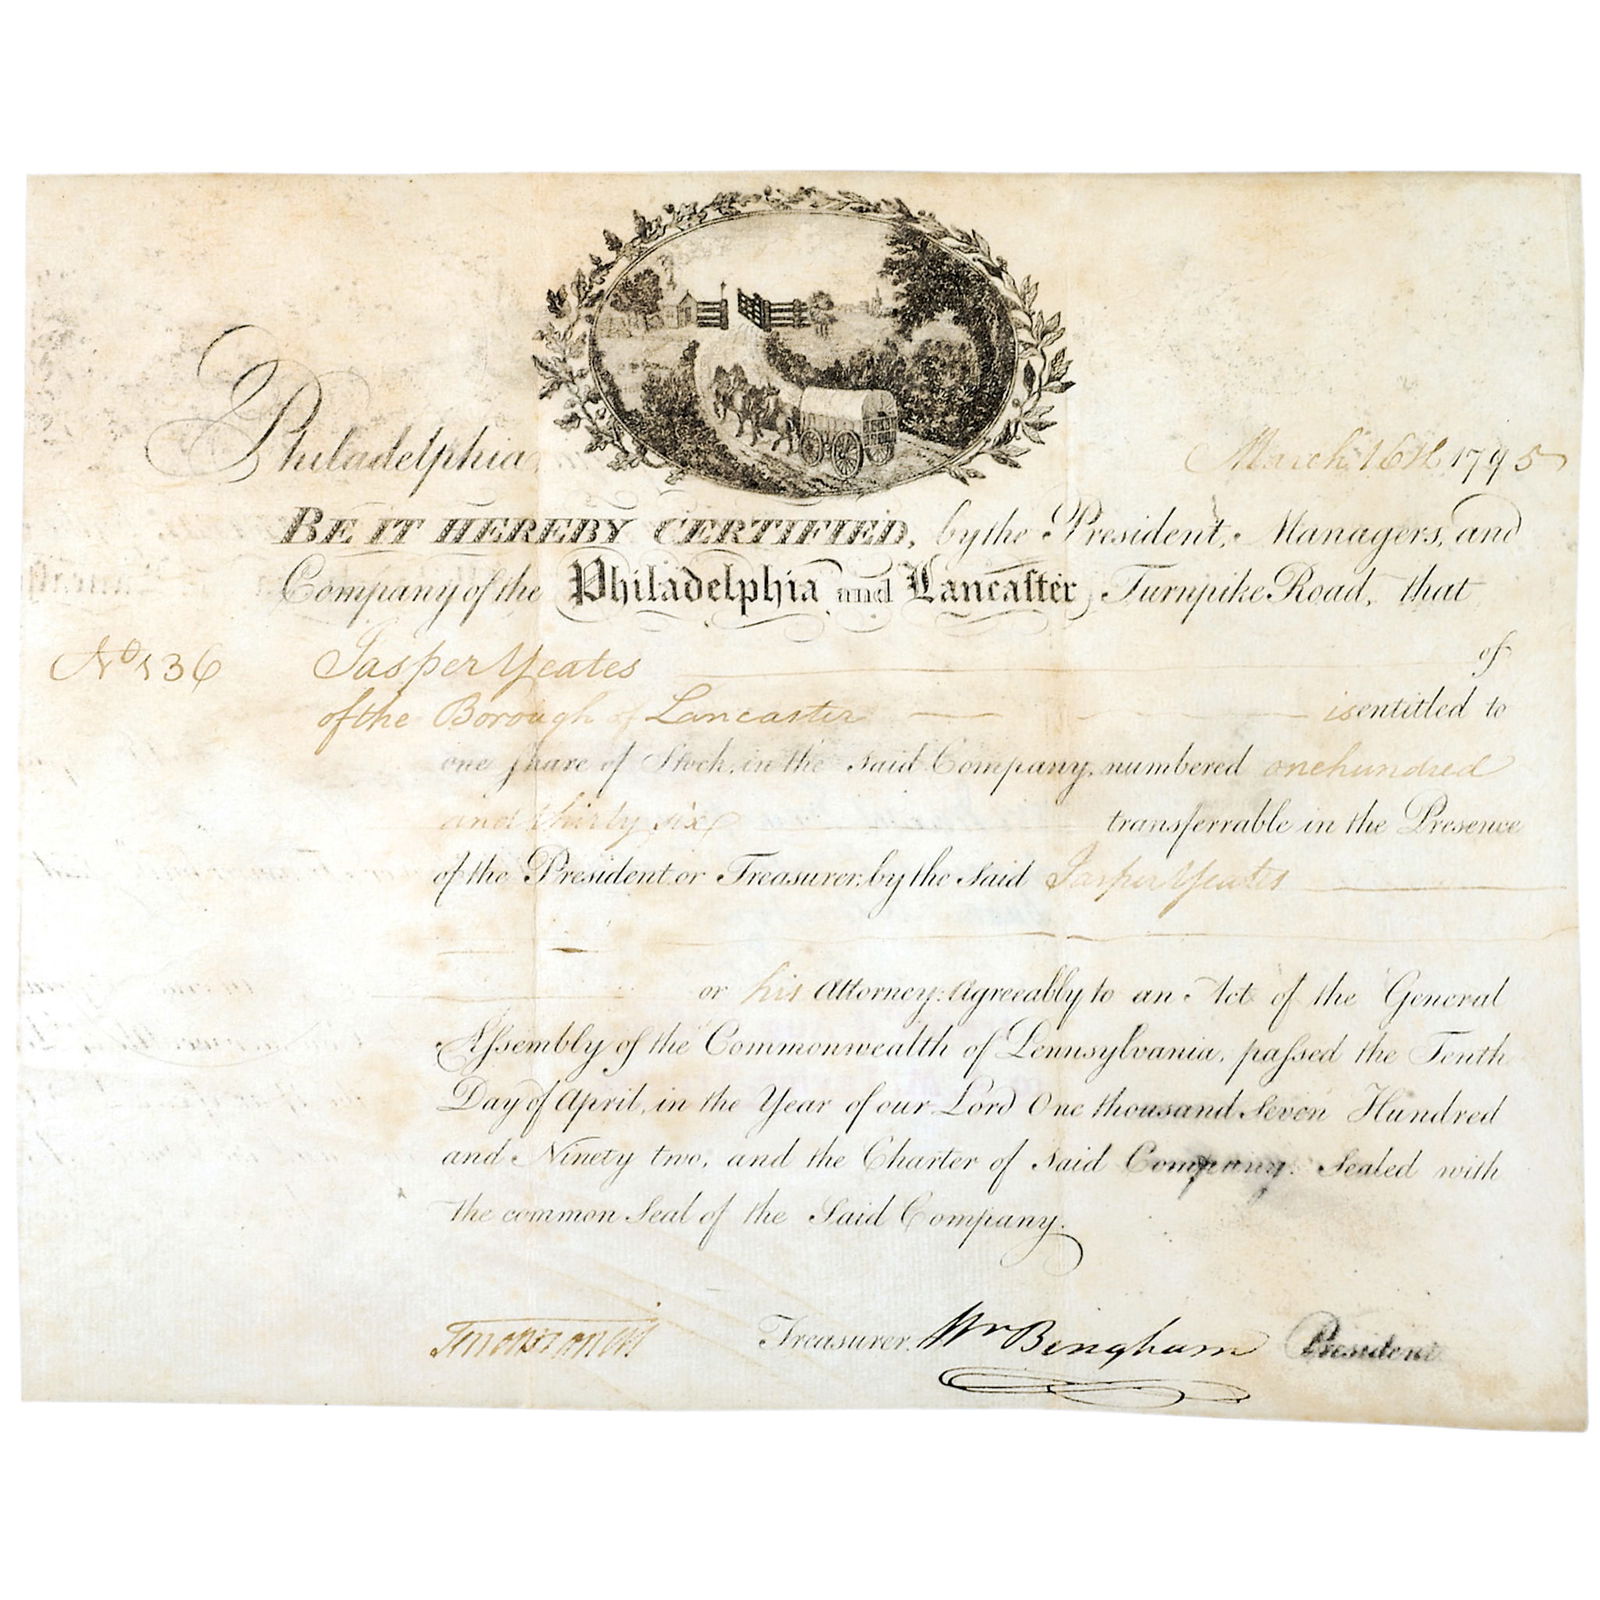 Philadelphia, March 16th 1795
BE IT HEREBY CERTIFIED, by the President, Managers, and
Company of the Philadelphia and Lancaster Turnpike Road, that
No 136 Jasper Yeates of
of the Borough of Lancaster is entitled to
one share of Stock, in the said Company, numbered one hundred
and thirty six transferrable in the Presence
of the President or Treasurer, by the said Jasper Yeates
or his Attorney: Agreeably to an Act of the General
Assembly of the Commonwealth of Pennsylvania, passed the Tenth
Day of April, in the Year of our Lord One thousand Seven Hundred
and Ninety two, and the Charter of said Company. Sealed with
the common Seal of the Said Company.
Treasurer. Wm Bingham President